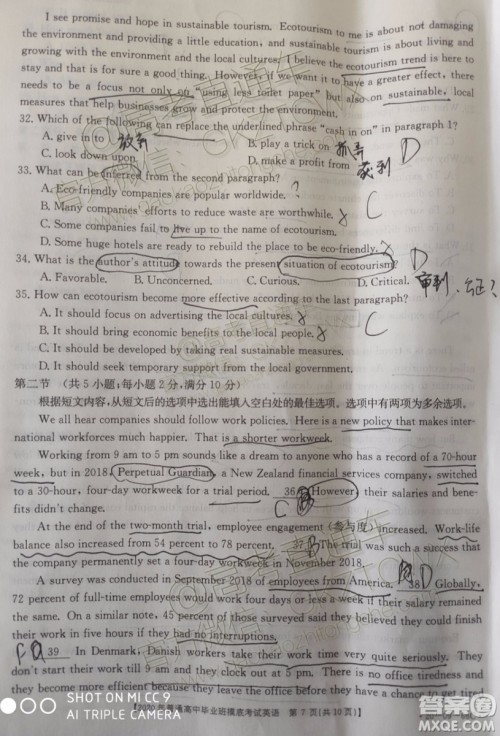 I see promise and hope in sustainable tourism. Ecotourism to me is about not damaging
the environment and providing a little education, and sustainable tourism is about living and
growing with the environment and the local cultures. I believe the ecotourism trend is here to
stay and that is for sure a good thing. However, if we want it to have a greater effect, there
needs to be a focus not only on "using less toilet paper" but also on sustainable, local
measures that help businesses grow and protect the environment.
32. Which of the following can replace the underlined phrase "cash in on" in paragraph 1?
A. give in to 放弃 B. play a trick on D
C. look down upon. D. make a profit from 获利
33. What can be inferred from the second paragraph?
A. Eco-friendly companies are popular worldwide. ?
B. Many companies' efforts to reduce waste are worthwhile. x C
C. Some companies fail to live up to the name of ecotourism.
D. Some huge hotels are ready to rebuild the place to be eco-friendly. x
34. What is the author's attitude towards the present situation of ecotourism? D
A. Favorable. B. Unconcerned. C. Curious. D. Critical.
35. How can ecotourism become more effective according to the last paragraph?
A. It should focus on advertising the local cultures. x
B. It should bring economic benefits to the local people. x C
C. It should be developed by taking sustainable measures.
D. It should seek temporary support from the local government.
第二节 (共5小题;每小题2分,满分10分)
根据短文内容,从短文后的选项中选出能填入空白处的最佳选项。选项中有两项为多余选项。
We all hear companies should follow work policies. Here is a new policy that makes inter-
national workforces much happier. That is a shorter workweek.
Working from 9 am to 5 pm sounds like a dream to anyone who has a record of a 70-hour
week, but in 2018, Perpetual Guardian, a New Zealand financial services company, switched
to a 30-hour, four-day workweek for a trial period. 36 However, their salaries and bene-
fits didn't change. C
At the end of the two-month trial, employee engagement (参与度) increased. Work-life
balance also increased from 54 percent to 78 percent. 37 B The trial was such a success that
the company permanently set a four-day workweek in November 2018.
A survey was conducted in September 2018 of employees from America. 38 D Globally,
72 percent of full-time employees would work four days or less a week if their salary remained
the same. On a similar note, 45 percent of those surveyed said they believe they could finish
their work in five hours if they had no interruptions.
39 In Denmark, Danish workers take their work time very quite seriously. They
don't start their work till 9 am and they clock out at 5 pm. There is no office tiredness and
they become more efficient because they leave the office before they get tired and need to rest
2020年普通高中毕业班摸底考试英语 第7页(共10页)
SHOT ON MI CC 9
AI TRIPLE CAMERA
答案圈
MXQE.COM